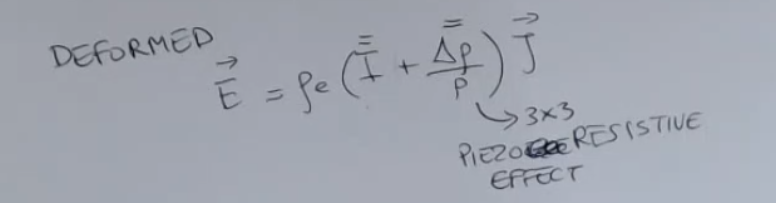 DEFORMED
E⃗ = ρe (I̿ + Δρ̿/ρ) J⃗
↳ 3×3
PIEZORESISTIVE
EFFECT